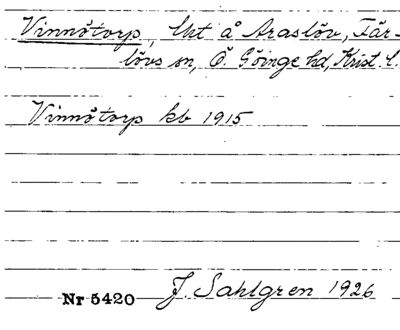 Vinnötorp, lht å Araslöv, Fär-
lövs sn, Ö. Göinge hd, Krist. l.
Vinnötorp kb 1915
Nr 5420 J. Sahlgren 1926